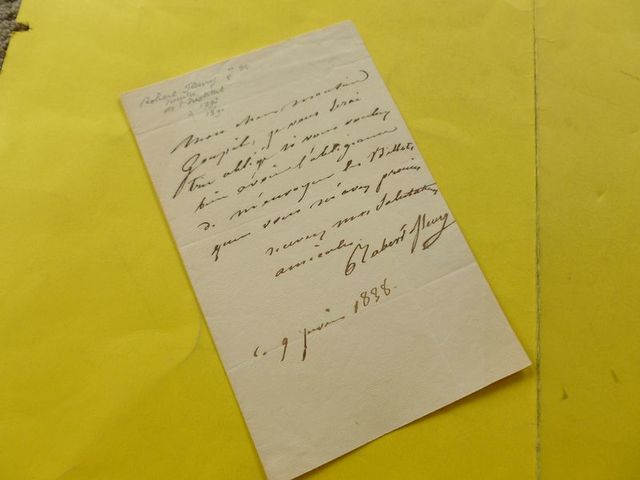 Robert Fleury
Peintre
Mon cher monsieur
Goupil, je vous serai
très obligé si vous voulez
bien avoir l'obligeance
de m'envoyer les Billets
que vous m'avez promis
recevez mes Salutations
amicales
Robert Fleury
Ce 9 1838.